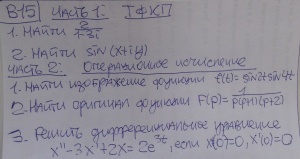 В15 Часть 1: ТФКП
1. Найти 2/3i
2. Найти sin(x+iy)
Часть 2: Операционное исчисление
1. Найти изображение функции f(t)=sin2t sin4t
2. Найти оригинал функции F(p)=2/p(p+1)(p+2)
3. Решить дифференциальное уравнение
x''-3x'+2x=2e^3t, если x(0)=0, x'(0)=0